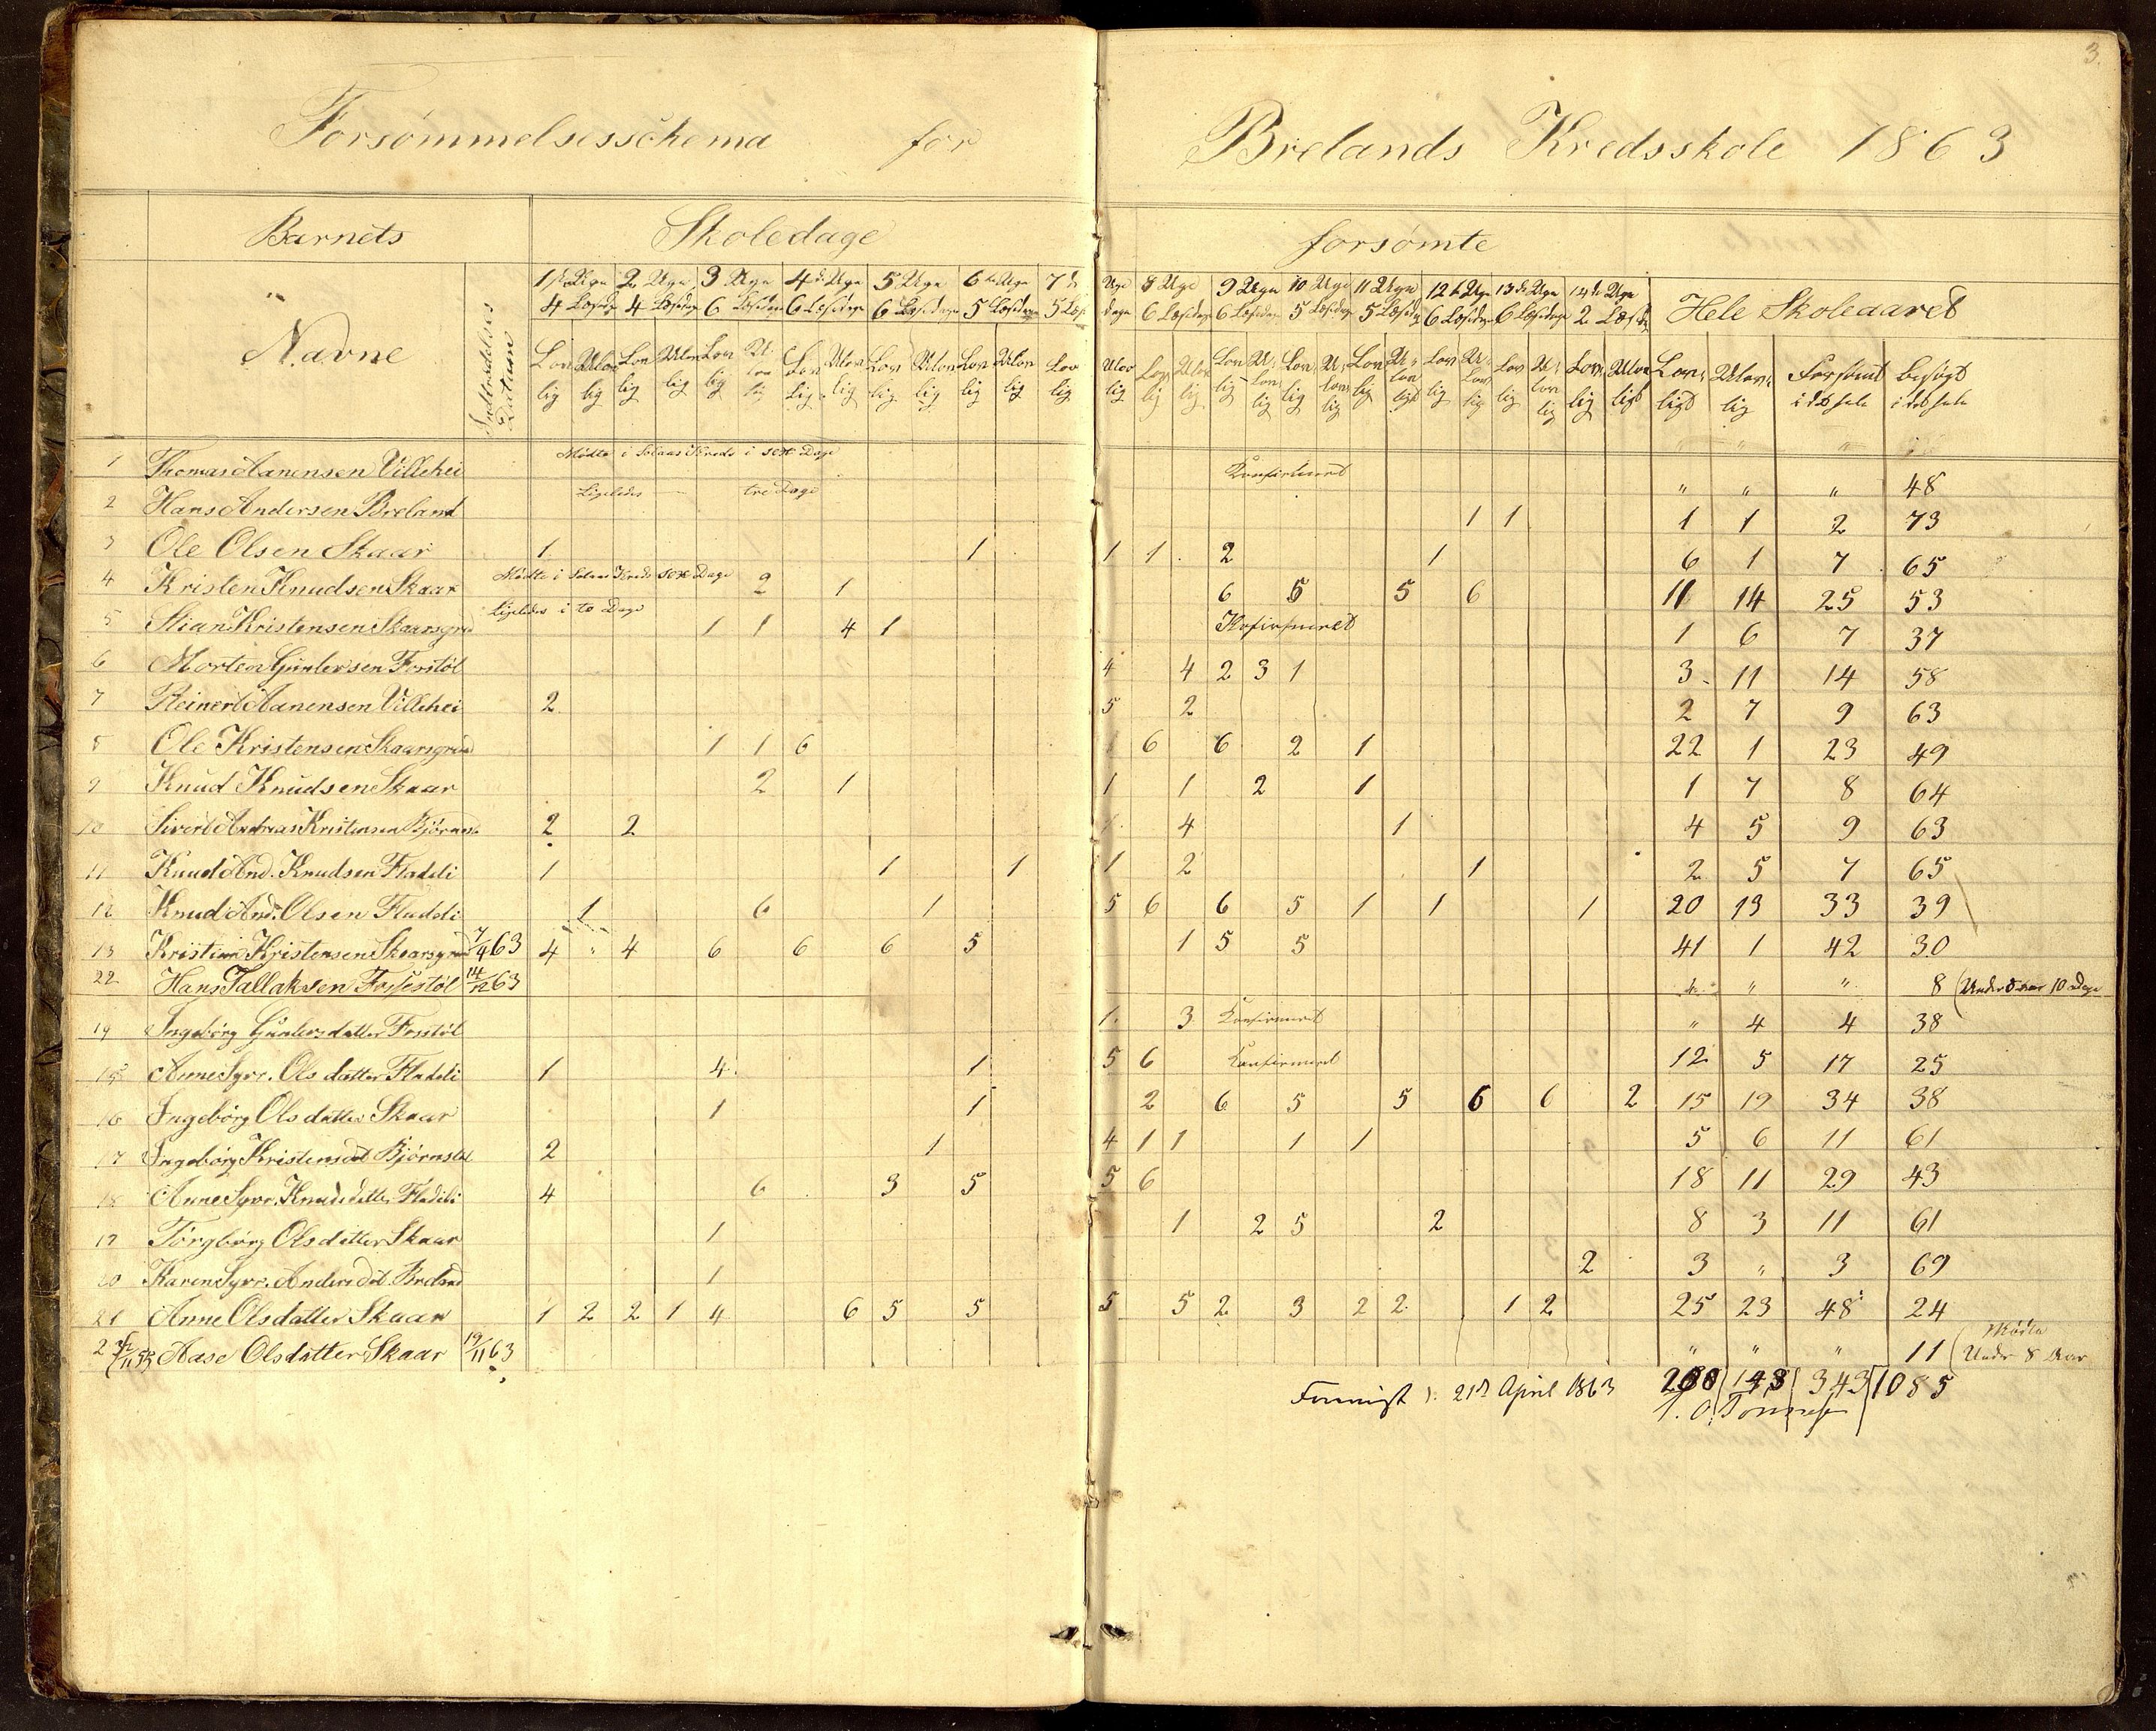 3.
Forsømmelsesschema for Brelands Kredsskole 1863
Barnets Skoledage forsømte
Navne Indtrædelses Datum
1ste Uge 2 Uge 3 Uge 4de Uge 5 Uge 6te Uge 7de Uge 8 Uge 9 Uge 10 Uge 11 Uge 12te Uge 13de Uge 14de Uge Hele Skoleaaret
4 Læsedage 4 Læsedage 6 Læsedage 6 Læsedage 6 Læsedage 5 Læsedage 5 Læsedage 6 Læsedage 6 Læsedage 5 Læsedage 5 Læsedage 6 Læsedage 6 Læsedage 2 Læsedage
Lovlig Ulovlig Lovlig Ulovlig Lovlig Ulovlig Lovlig Ulovlig Lovlig Ulovlig Lovlig Ulovlig Lovlig Ulovlig Lovlig Ulovlig Lovlig Ulovlig Lovlig Ulovlig Lovlig Ulovligt Lovlig Ulovlig Lovlig Ulovlig Lovlig Ulovligt Lovligt Ulovlig Forsømt i det hele besøgt i det hele
1 Thomas Aanensen Villehei Mødte i Solaas Kreds i sex Dage Konfirmeret " " " 48
2 Hans Andersen Breland Ligeledes — tre Dage 1 1 1 1 2 73
3 Ole Olsen Skaar 1 1 1 1 2 1 6 1 7 65
4 Kristen Knudsen Skaar Mødte i Solaas Kreds sex Dage 2 1 6 5 5 6 11 14 25 53
5 Stian Kristensen Skaarsgrd Ligeledes i to Dage 1 1 4 1 Konfirmeret 1 6 7 37
6 Morten Gunlersen Frestøl 4 4 2 3 1 3 11 14 58
7 Reinert Aanensen Villehei 2 5 2 2 7 9 63
8 Ole Kristensen Skaarsgrd 1 1 6 6 6 2 1 22 1 23 49
9 Knud Knudsen Skaar 2 1 1 1 2 1 1 7 8 64
10 Sivert Andreas Kristensen Bjørnst 2 2 1 4 1 4 5 9 63
11 Knud And. Knudsen Fladeli 1 1 1 1 2 1 2 5 7 65
12 Knud And. Olsen Fladeli 1 6 1 5 6 6 5 1 1 1 20 13 33 39
13 Kristian Kristensen Skaarsgrd 7/9 63 4 " 4 6 6 6 5 1 5 5 41 1 42 30
22 Hans Tallaksen Frøsestøl 14/12 63 " " " 8 (Under 8 aar 10 Dage
14 Ingebørg Gunlersdatter Frestøl 1 3 Konfirmeret " 4 4 38
15 Anne Syrr. Olsdatter Fladeli 1 4 1 5 6 Konfirmeret 12 5 17 25
16 Ingebørg Olsdatter Skaar 1 1 2 6 5 5 6 6 2 15 19 34 38
17 Ingebørg Kristensdat Bjørnstøl 2 1 4 1 1 1 1 5 6 11 61
18 Anne Syrr. Knudsdatter Fladeli 4 6 3 5 5 6 18 11 29 43
19 Torgbørg Olsdatter Skaar 1 1 2 5 2 8 3 11 61
20 Karen Syrr. Andersdat Breland 1 2 3 " 3 69
21 Anne Olsdatter Skaar 1 2 2 1 4 6 5 5 5 5 2 3 2 2 1 2 25 23 48 24
23 Aase Olsdatter Skaar 19/11 63 " " " 11 (Mødte Under 8 Aar
200 143 343 1085
21de April 1863
T. O. Tønnesen